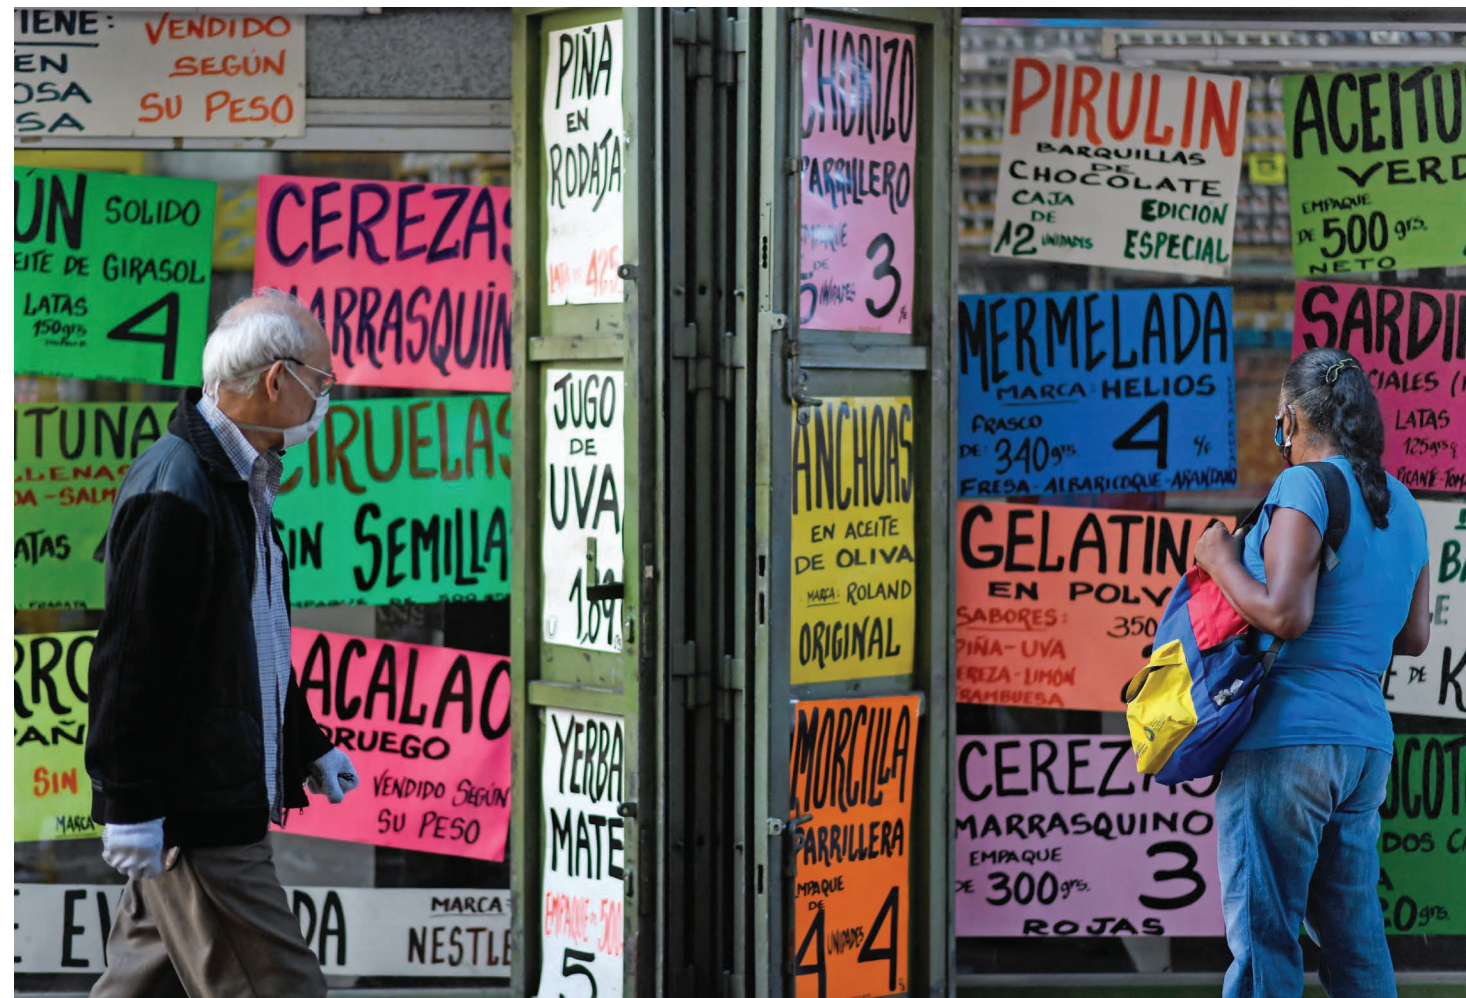 TIENE:
EN
OSA
SA
VENDIDO
SEGÚN
SU PESO
ÚN SOLIDO
EITE DE GIRASOL
LATAS
150grs
4
CEREZAS
MARRASQUIN
ITUNA
LLENAS
DA-SALM
ATAS
CIRUELAS
SIN SEMILLA
RRO
PAÑ
SIN
MARCA
BACALAO
RUEGO
VENDIDO SEGÚN
SU PESO
MARCA
NESTLE
PIÑA
EN
RODAJA
JUGO
DE
UVA
1,89
YERBA
MATE
EMPAQUE DE 500
5
CHORIZO
PARRILLERO
EMPAQUE
DE
5 UNIDADES
3
ANCHOAS
EN ACEITE
DE OLIVA
MARCA: ROLAND
ORIGINAL
MORCILLA
PARRILLERA
EMPAQUE
DE
4 UNIDADES 4
PIRULIN
BARQUILLAS
DE
CHOCOLATE
CAJA
DE
12 UNIDADES
EDICIÓN
ESPECIAL
ACEITU
VERD
EMPAQUE
DE 500 grs.
NETO
MERMELADA
MARCA: HELIOS
FRASCO
DE: 340grs.
4 c/u
FRESA-ALBARICOQUE-ARANDANO
SARDI
CIALES
LATAS
125grs
PICANTE-TOMA
GELATIN
EN POLV
SABORES:
PIÑA-UVA
CEREZA-LIMON
FRAMBUESA
350
CEREZAS
MARRASQUINO
EMPAQUE
DE 300grs.
3
ROJAS
DE K
OCOT
DOS C
0grs.